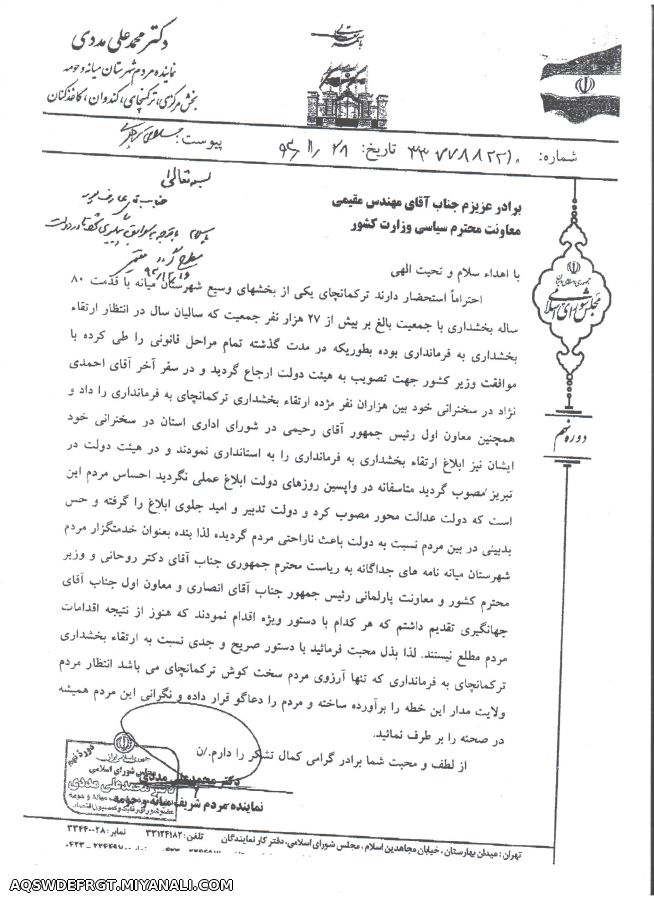 دکتر محمد علی مددی
نماینده مردم شهرستان میانه و حومه
بخش مرکزی، ترکمنچای، کندوان، کاغذکنان
شماره:
تاریخ:
پیوست:
جمهوری اسلامی ایران
مجلس شورای اسلامی
دوره نهم
بسمه تعالی
برادر عزیزم جناب آقای مهندس مقیمی
معاونت محترم سیاسی وزارت کشور
با اهداء سلام و تحیت الهی
احتراماً استحضار دارند ترکمانچای یکی از بخشهای وسیع شهرستان میانه با قدمت ۸۰
ساله بخشداری با جمعیت بالغ بر بیش از ۲۷ هزار نفر جمعیت که سالیان سال در انتظار ارتقاء
بخشداری به فرمانداری بوده بطوریکه در مدت گذشته تمام مراحل قانونی را طی کرده با
موافقت وزیر کشور جهت تصویب به هیئت دولت ارجاع گردید و در سفر آخر آقای احمدی
نژاد در سخنرانی خود بین هزاران نفر مژده ارتقاء بخشداری ترکمانچای به فرمانداری را داد و
همچنین معاون اول رئیس جمهور آقای رحیمی در شورای اداری استان در سخنرانی خود
ایشان نیز ابلاغ ارتقاء بخشداری به فرمانداری را به استانداری نمودند و در هیئت دولت در
تبریز مصوب گردید متاسفانه در واپسین روزهای دولت ابلاغ عملی نگردید احساس مردم این
است که دولت عدالت محور مصوب کرد و دولت تدبیر و امید جلوی ابلاغ را گرفته و حس
بدبینی در بین مردم نسبت به دولت باعث ناراحتی مردم گردیده لذا بنده بعنوان خدمتگزار مردم
شهرستان میانه نامه های جداگانه به ریاست محترم جمهوری جناب آقای دکتر روحانی و وزیر
محترم کشور و معاونت پارلمانی رئیس جمهور جناب آقای انصاری و معاون اول جناب آقای
جهانگیری تقدیم داشتم که هر کدام با دستور ویژه اقدام نمودند که هنوز از نتیجه اقدامات
مردم مطلع نیستند. لذا بذل محبت فرمائید با دستور صریح و جدی نسبت به ارتقاء بخشداری
ترکمانچای به فرمانداری که تنها آرزوی مردم سخت کوش ترکمانچای می باشد انتظار مردم
ولایت مدار این خطه را برآورده ساخته و مردم را دعاگو قرار داده و نگرانی این مردم همیشه
در صحنه را بر طرف نمائید.
از لطف و محبت شما برادر گرامی کمال تشکر را دارم./ن
دکتر محمدعلی مددی
نماینده مردم شریف میانه و حومه
دوره نهم
جمهوری اسلامی ایران
مجلس شورای اسلامی
دکتر محمدعلی مددی
تهران: میدان بهارستان، خیابان مجاهدین اسلام، مجلس شورای اسلامی، دفتر کار نمایندگان تلفن: ۳۳۱۲۴۱۸۲ نمابر: ۳۳۴۴۰۰۲۸
AQSWDEFRGT.MIYANALI.COM